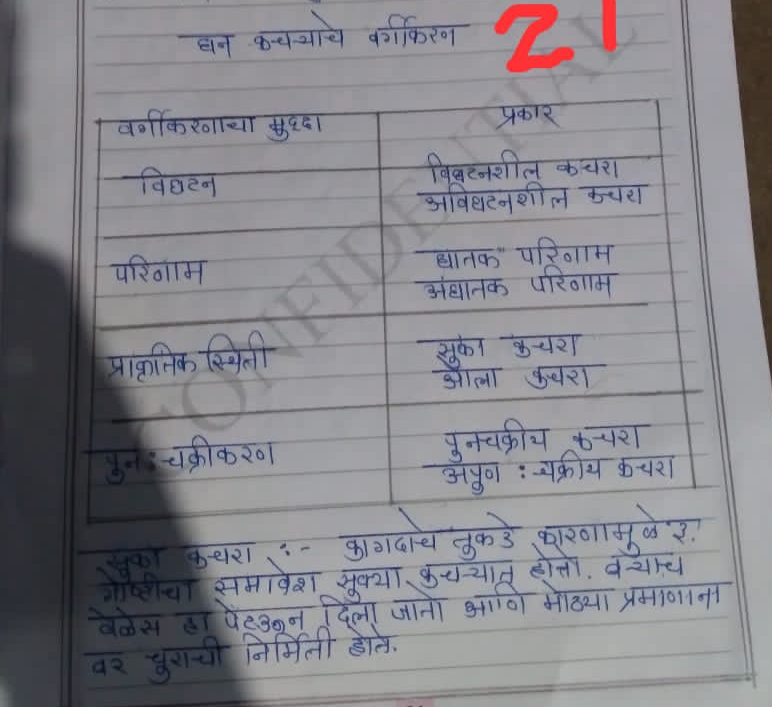 घन कचऱ्याचे वर्गीकरण
21
वर्गीकरणाचा मुद्दा प्रकार
विघटन विघटनशील कचरा
अविघटनशील कचरा
परिणाम घातक परिणाम
अघातक परिणाम
प्राकृतिक स्थिती सुका कचरा
ओला कचरा
पुनःचक्रीकरण पुनचक्रीय कचरा
अपुण : चक्रीय कचरा
सुका कचरा :- कागदाचे तुकडे कारणामुळे इ.
गोष्टींचा समावेश सुक्या कचऱ्यात होतो. बऱ्याच
वेळेस हा पेटऊन दिला जातो आणि मोठ्या प्रमाणाना
वर धुराची निर्मिती होते.
CONFIDENTIAL